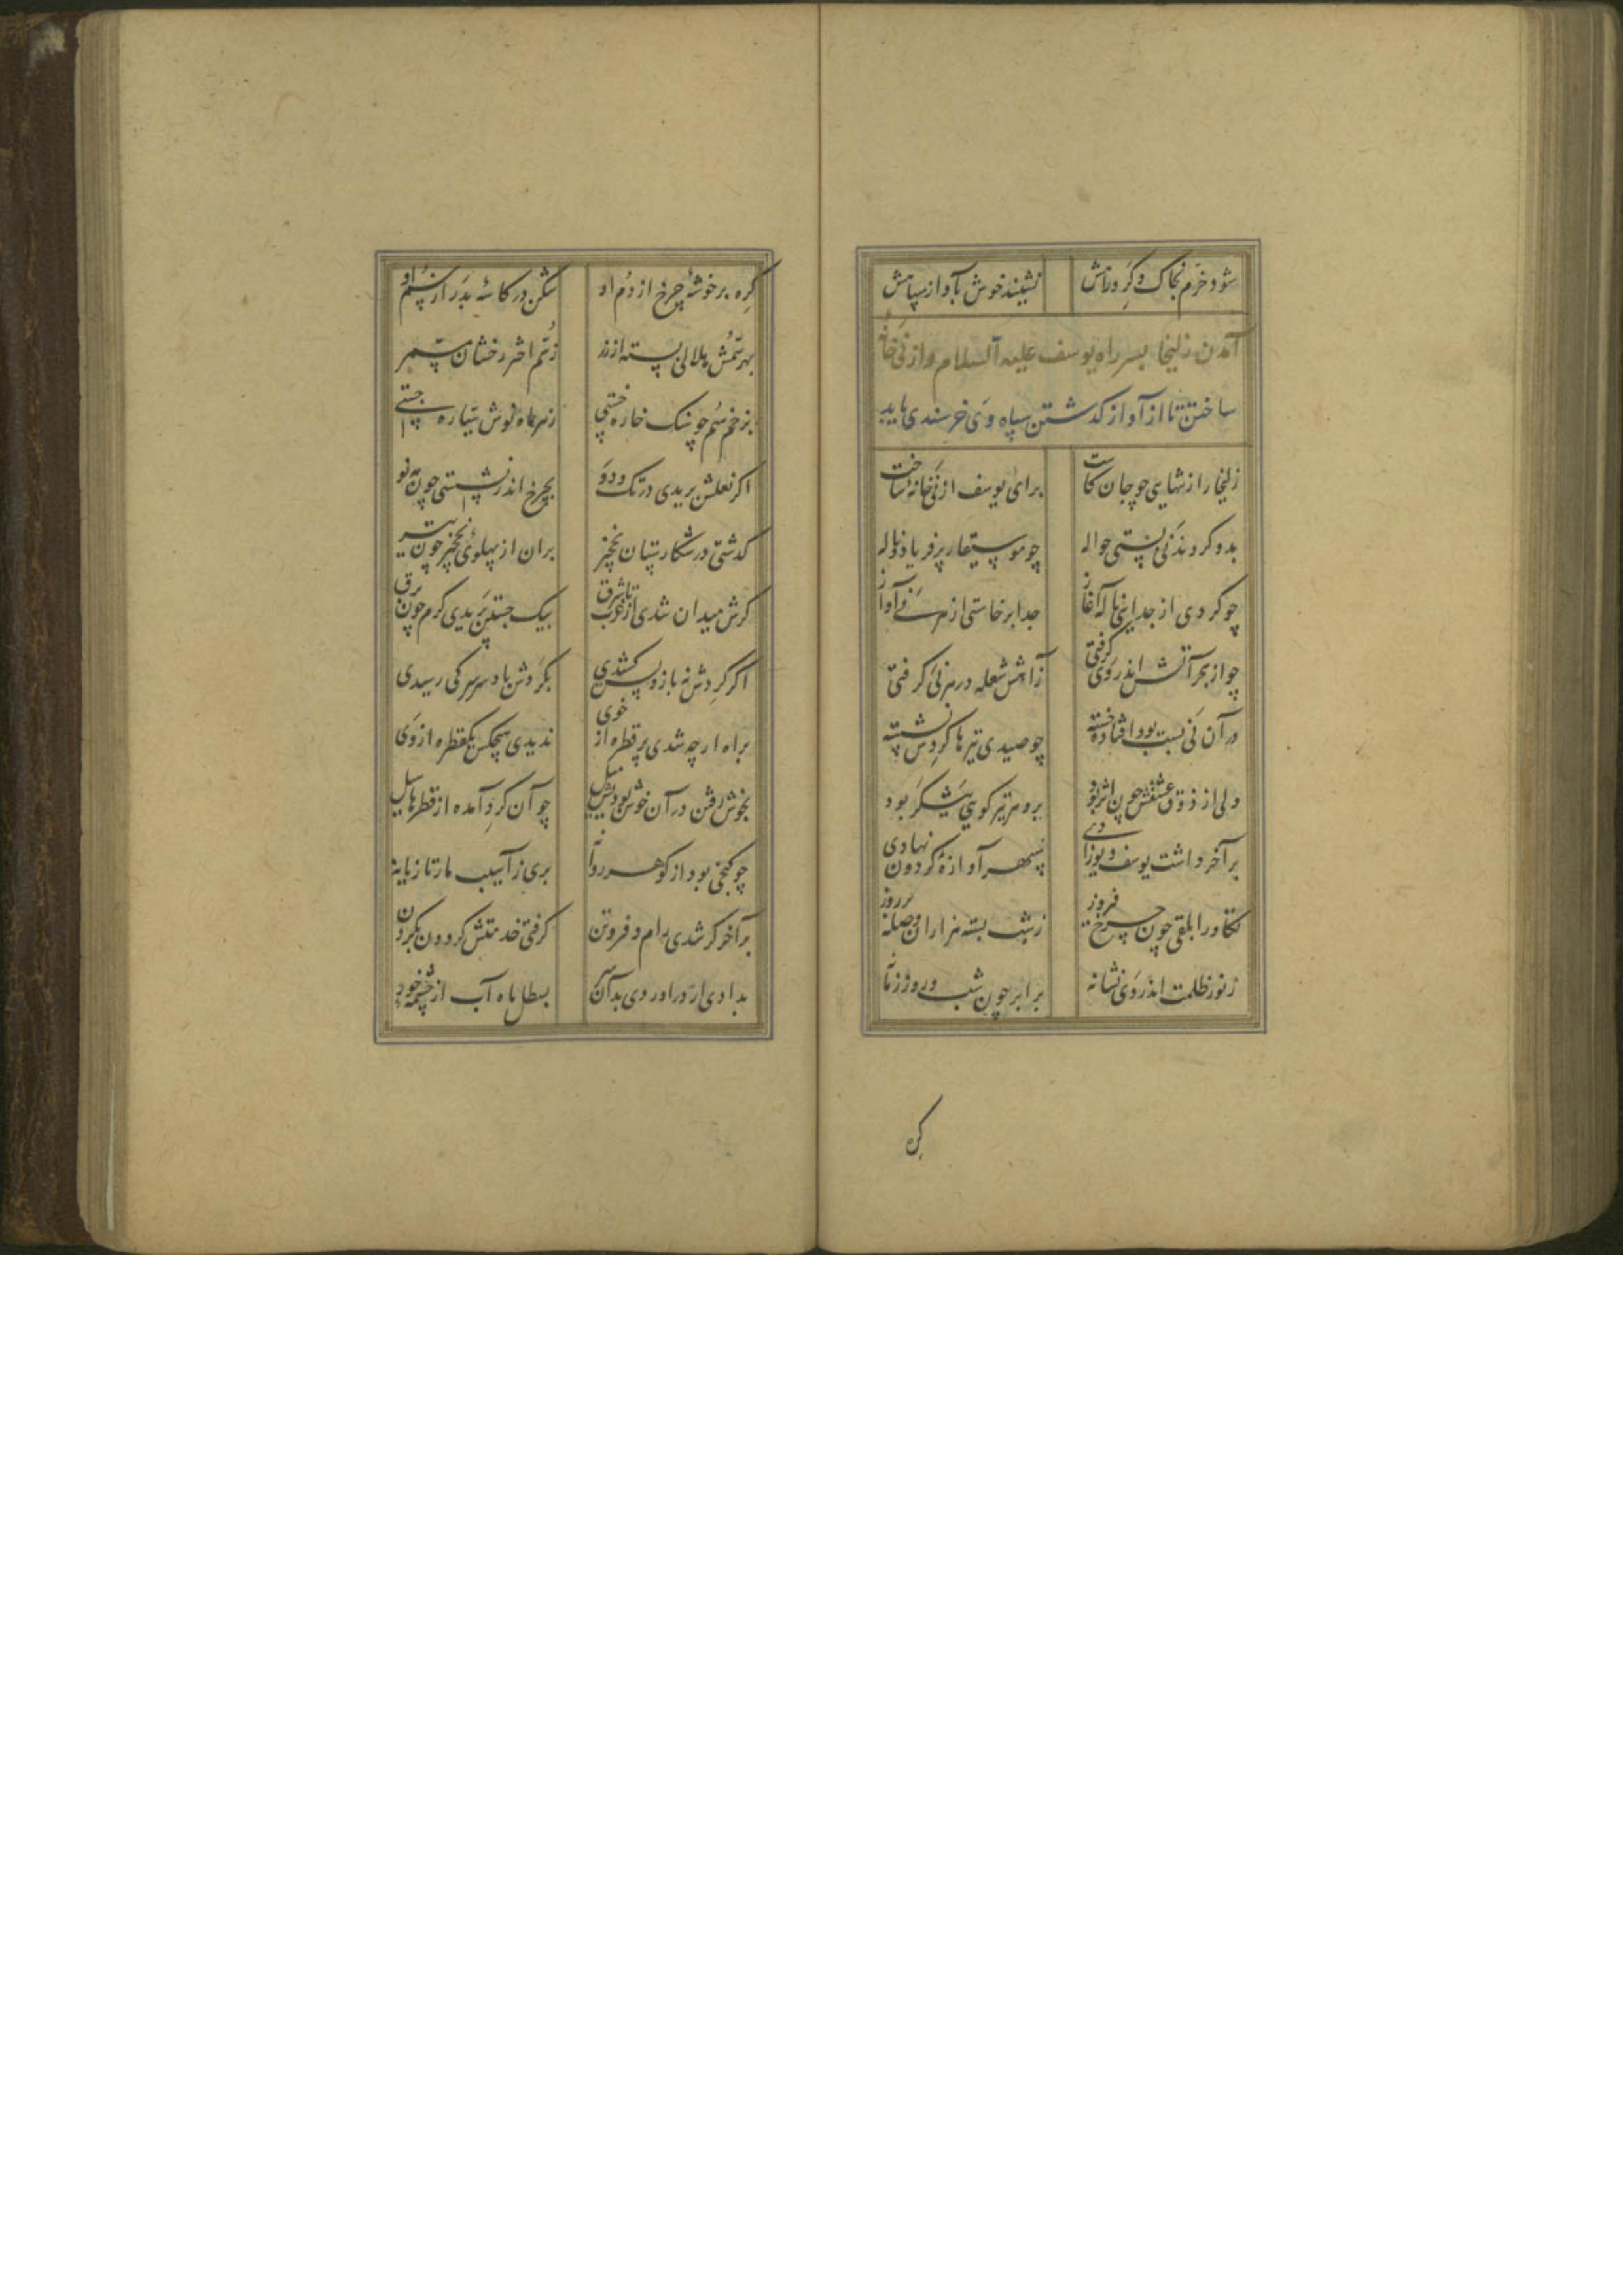 شود خرم بخاک و کرد راهش نشیند خوش بآواز سپاهش
آمدن زلیخا بسر راه یوسف علیه السلام و از نی خانه
ساختن تا از آواز کذشتن سپاه وی خرسندی یابد
زلیخا را ز تنهایی چو جان کاست برای یوسف از نی خانه ساخت
بدو کردند نی بستی حواله چو موسیقار پر فریاد و ناله
چو کردی از جدایی ناله آغاز جدا برخاستی از هر نی آواز
چو از هجر آتش اندر وی کرفتی ز آهش شعله در هر نی کرفتی
در آن نی بست بود افتاده خسته چو صیدی تیرها کردش نشسته
ولی از ذوق عشقش چون اثر بود برو هر تیر کویی نیشکر بود
بر آخر داشت یوسف دیوزادی سپهر آوازهٔ کردون نهادی
تکاور ابلقی چون چرخ فیروز ز شب بسته هزاران وصله بر روز
ز نور و ظلمت اندر وی نشانه برابر چون شب و روز زمانه
کره
کره بر خوشهٔ چرخ از دم او شکن در کاسهٔ بدر از سم او
بهر سمش هلالی بسته از زر ز سم اختر رخشان
بزخم سم چو سنک خاره خستی ز هر ماه نوش سیاره جستی
اکر نعلش پریدی در تک و دو بچرخ اندر نشستی چون مه نو
کذشتی در شکارستان نخچیر بران از پهلوی نخچیر چون تیر
کرش میدان شدی از غرب تا شرق بیک جستن پریدی کرم چون برق
اکر کردش نه باز و پس کشیدی بکردش باد صرصر کی رسیدی
براه ار چه شدی پر قطره از خوی ندیدی هیچکس یکقطره از وی
بخوش رفتن در آن خوش بودیش میل چو آن کرد آمده از قطرها سیل
چو کنجی بود از کوهر روانه بری ز آسیب مار تازیانه
بر آخر کر شدی رام و فروتن کرفتی خدمتش کردون بکردن
بدادی بسطل ماه آب از چشمه خور